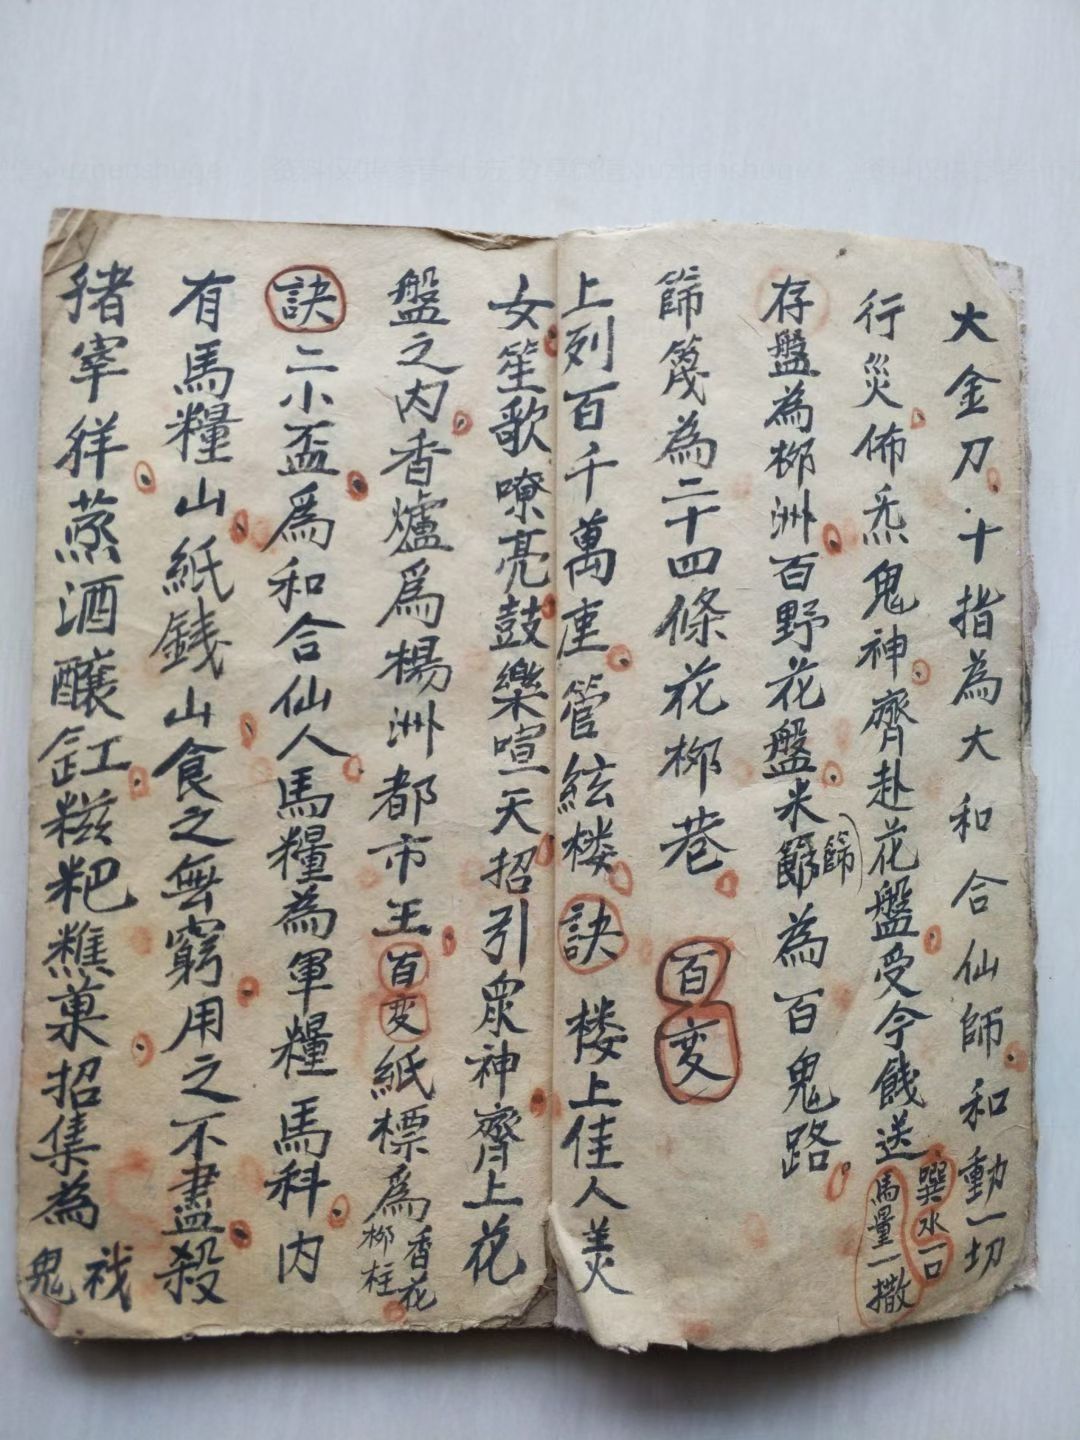 大金刀十指為大和合仙師和動一切
行災佈炁鬼神齊赴花盤受今餞送
噀水一口
馬量一撒
存盤為柳洲百野花盤米篩為百鬼路
篩
篩篾為二十四條花柳巷百変
上列百千萬座管絃楼訣楼上佳人美
女笙歌嘹亮鼓樂喧天招引眾神齊上花
盤之内香爐爲楊洲都市王百変紙標爲香花
柳柱
訣二小盃爲和合仙人馬糧為軍糧馬科内
有馬糧山紙錢山食之無窮用之不盡殺
豬宰牂蒸酒釀缸糍粑樵菓招集為
鬼